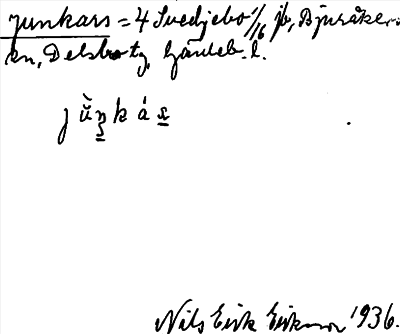 Junkars = 4 Svedjebo 1/6 jb, Bjuråker
sn, Delsbo tg, Gävleb. l.
j ù̈ n̲ k á s̲
Nils Erik Eriksson 1936.